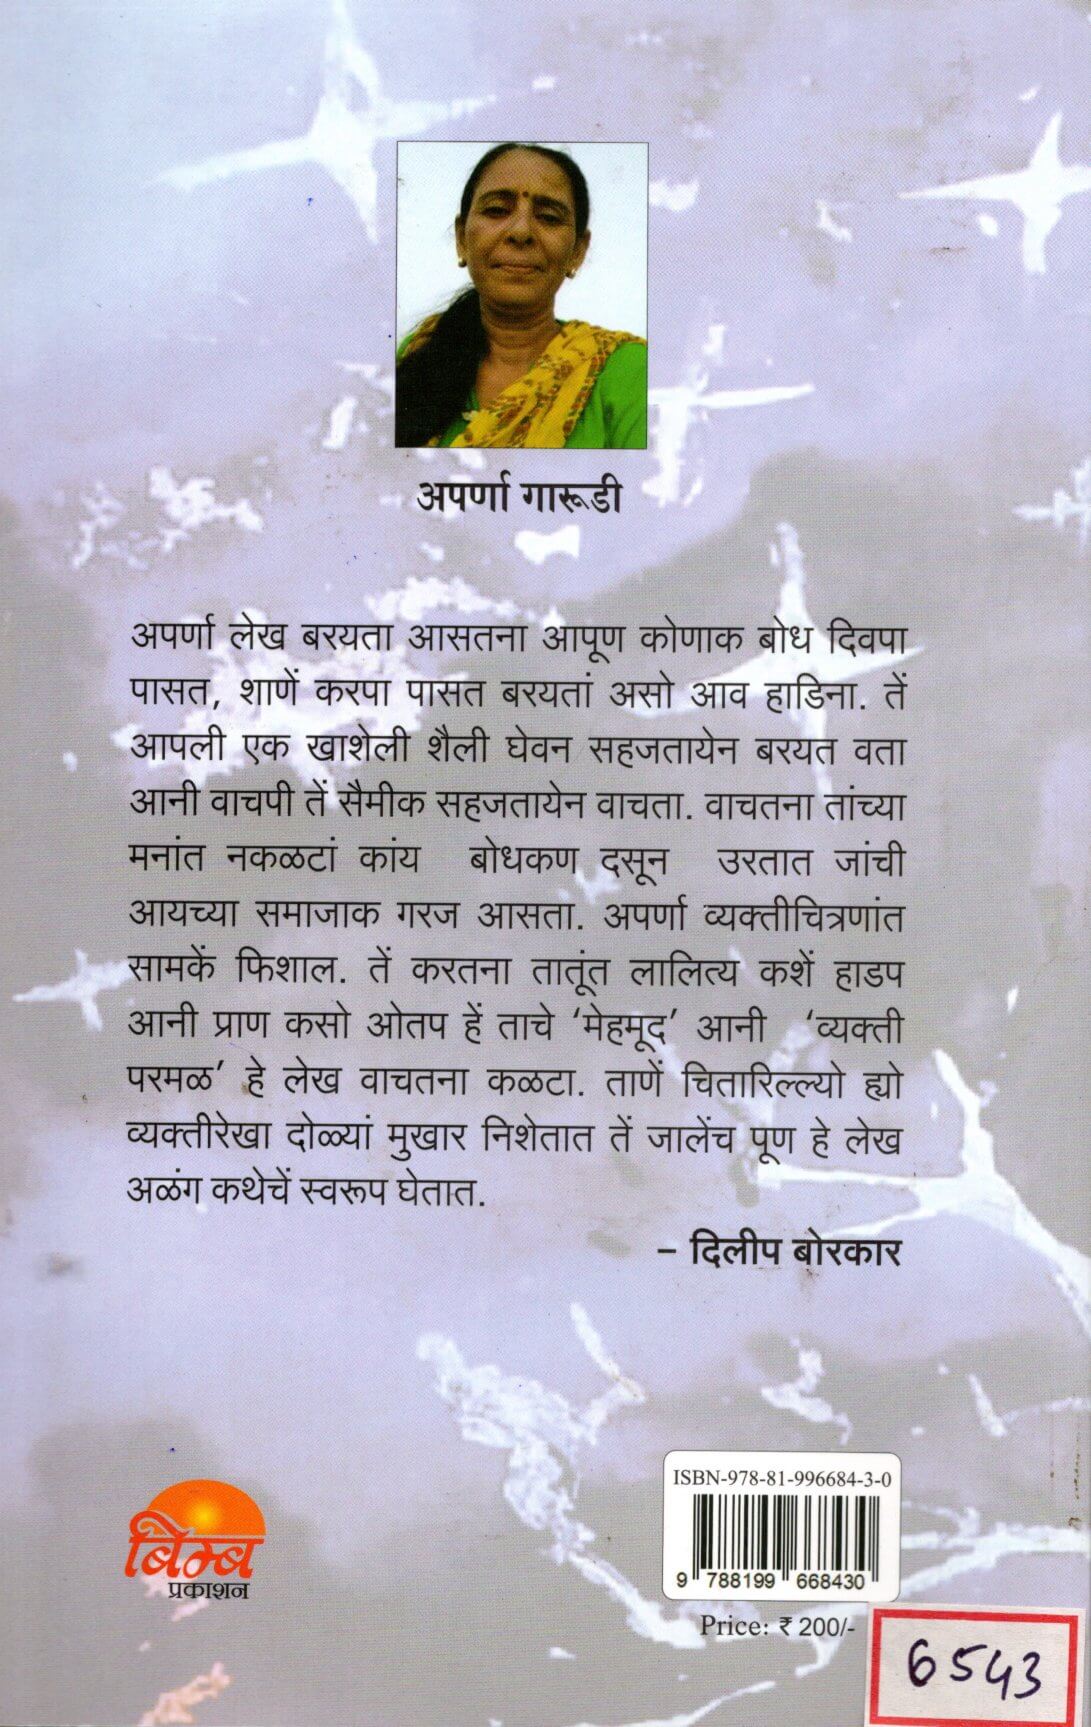 अपर्णा गारूडी
अपर्णा लेख बरयता आसतना आपूण कोणाक बोध दिवपा
पासत, शाणें करपा पासत बरयतां असो आव हाडिना. तें
आपली एक खाशेली शैली घेवन सहजतायेन बरयत वता
आनी वाचपी तें सैमीक सहजतायेन वाचता. वाचतना तांच्या
मनांत नकळटां कांय बोधकण दसून उरतात जांची
आयच्या समाजाक गरज आसता. अपर्णा व्यक्तीचित्रणांत
सामकें फिशाल. तें करतना तातूंत लालित्य कशें हाडप
आनी प्राण कसो ओतप हें ताचे ‘मेहमूद’ आनी ‘व्यक्ती
परमळ’ हे लेख वाचतना कळटा. ताणें चितारिल्ल्यो ह्यो
व्यक्तीरेखा दोळ्यां मुखार निशेतात तें जालेंच पूण हे लेख
अळंग कथेचें स्वरूप घेतात.
– दिलीप बोरकार
ISBN-978-81-996684-3-0
9 788199 668430
बिम्ब
प्रकाशन
Price: ₹ 200/-
6543